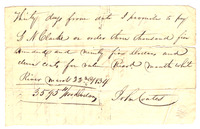 Thirty day from date I promise to pay
S. N. Clarke or order three thousand five
hundred and ninty five dollars and
cents for value Rec'd mouth White
River march 22nd 1839
3595
John Coates